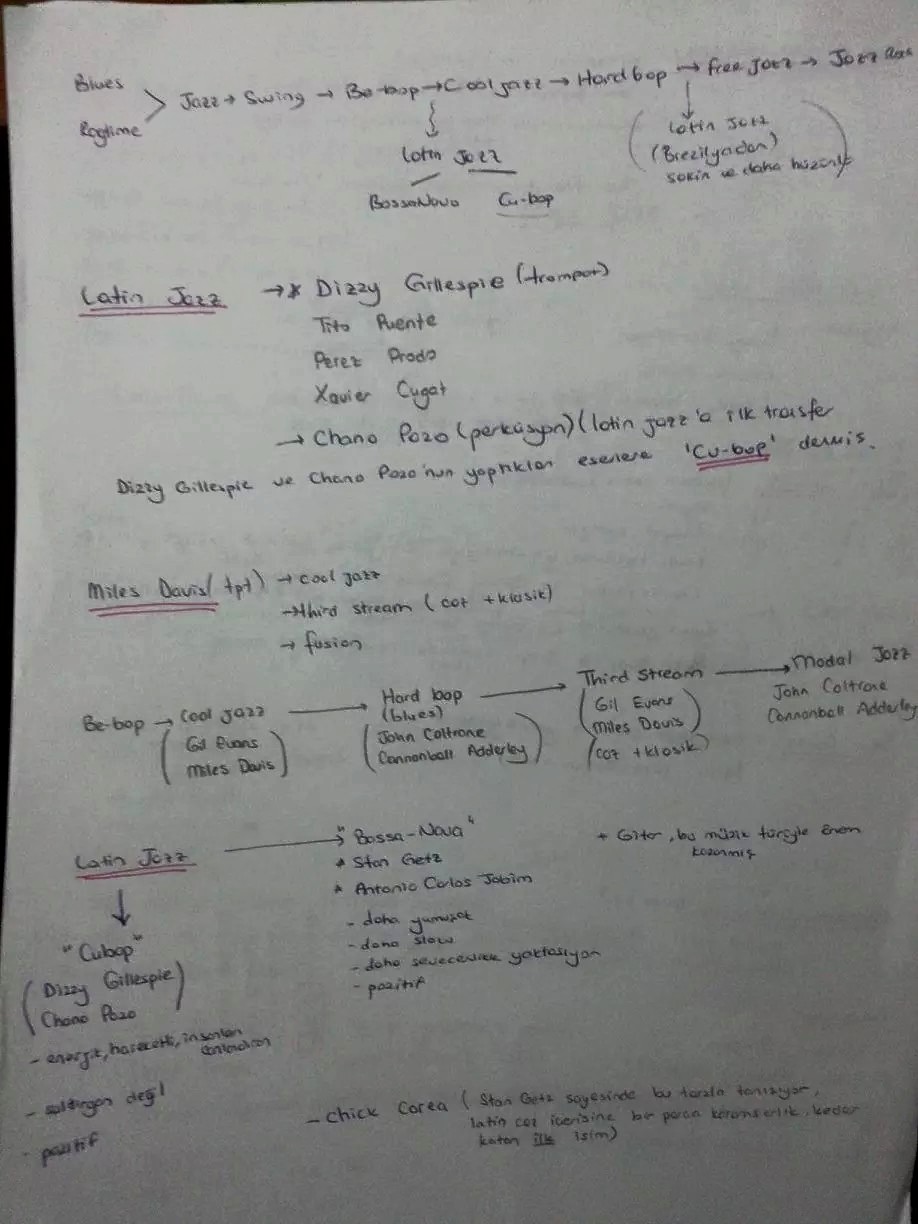 Blues
Ragtime
Jazz → Swing → Be-bop → Cool jazz → Hard bop → free jazz → Jazz
Latin Jazz
BossaNova Cu-bop
(Latin Jazz
(Brezilyadan)
sakin ve daha hüzünlü)
Latin Jazz → * Dizzy Gillespie (trompet)
Tito Puente
Perez Prado
Xavier Cugat
→ Chano Pozo (perküsyon) (latin jazz'a ilk transfer
Dizzy Gillespie ve Chano Pozo'nun yaptıkları eserlere 'Cu-bop' dermis.
Miles Davis (tpt) → cool jazz
→ third stream (caz + klasik)
→ fusion
Be-bop → Cool jazz → Hard bop → Third Stream → Modal Jazz
(Gil Evans
Miles Davis)
(blues)
(John Coltrane
Cannonball Adderley)
(Gil Evans
Miles Davis)
(caz + klasik)
John Coltrane
Cannonball Adderley
Latin Jazz → "Bossa-Nova"
* Stan Getz
* Antonio Carlos Jobim
- daha yumuşak
- daha slow
- daha sevecenlikle yaklaşıyor
- pozitif
+ Gitar, bu müzik türüyle önem
kazanmış
"Cubop"
(Dizzy Gillespie
Chano Pozo)
- energik, hareketli, insanları
canlandıran
- saldırgan değil
- pozitif
- Chick Corea (Stan Getz sayesinde bu tarzla tanışıyor,
latin caz içerisine bir parça karamsarlık, keder
katan ilk isim)